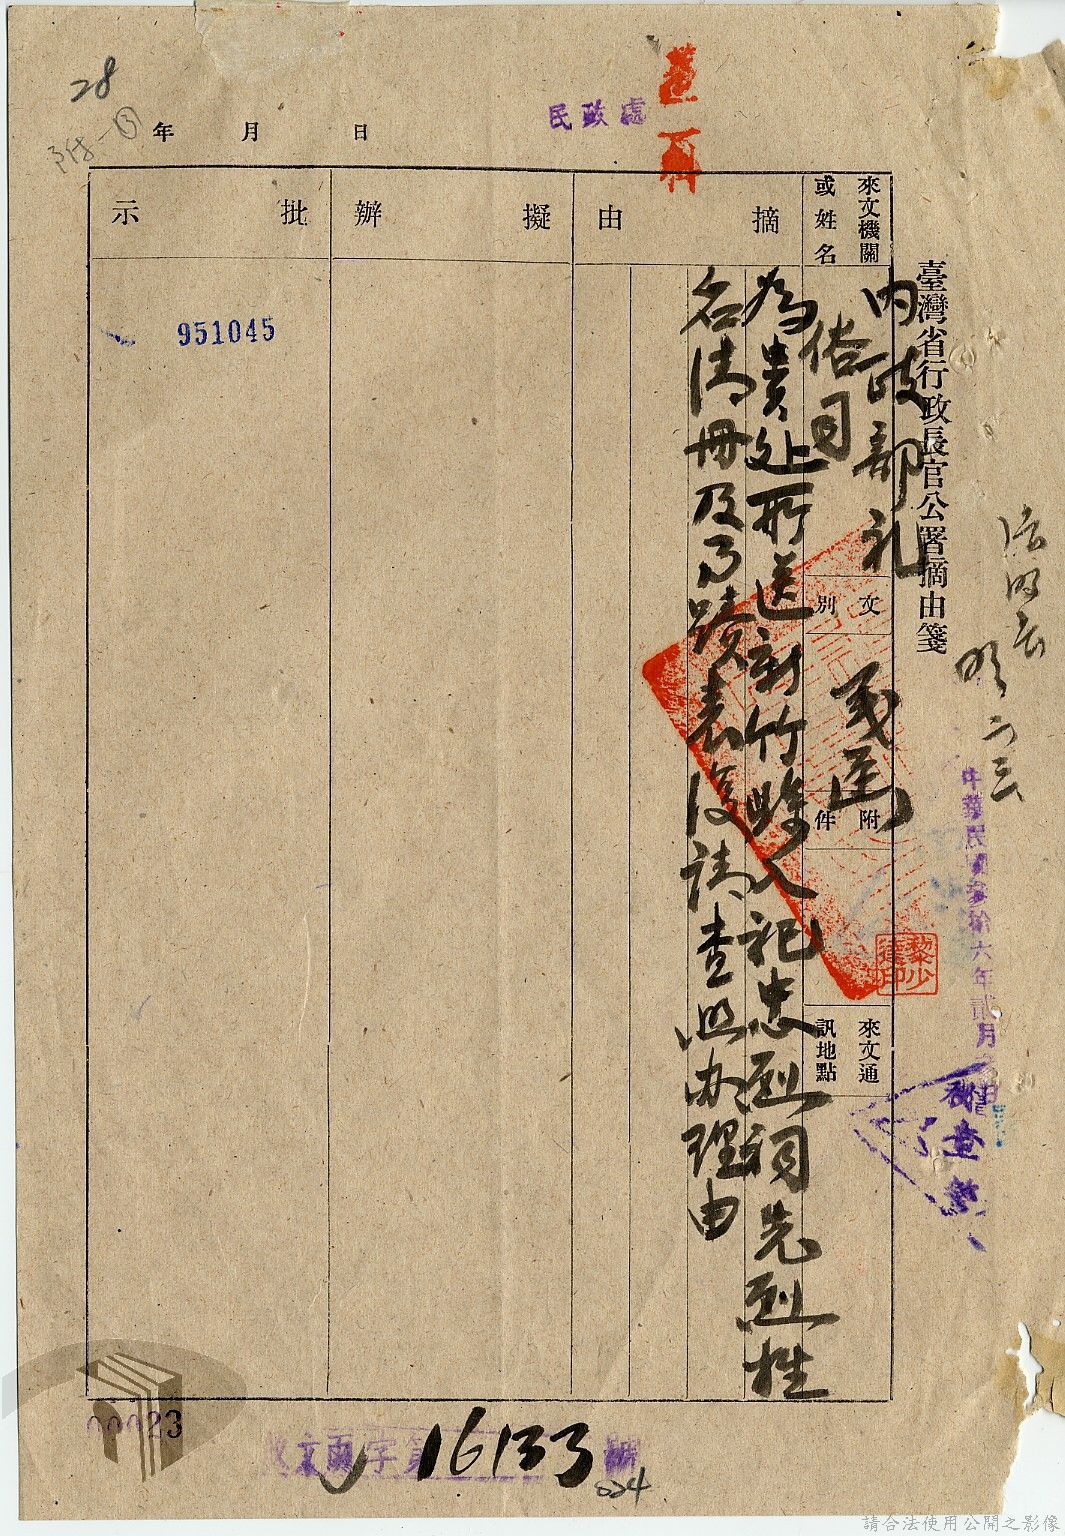 28
年 月 日
民政處
臺灣省行政長官公署摘由箋
來文機關
或姓名
內政部礼
俗司
文
別
箋函
附
件
來文通
訊地點
摘 由
為貴处所送新竹縣入祀忠烈祠先烈姓
名清冊及事蹟表復請查照办理由
擬 辦
批 示
951045
中華民國參拾六年貳月
黎少
達印
00023
字第
16133
號
024
請合法使用公開之影像